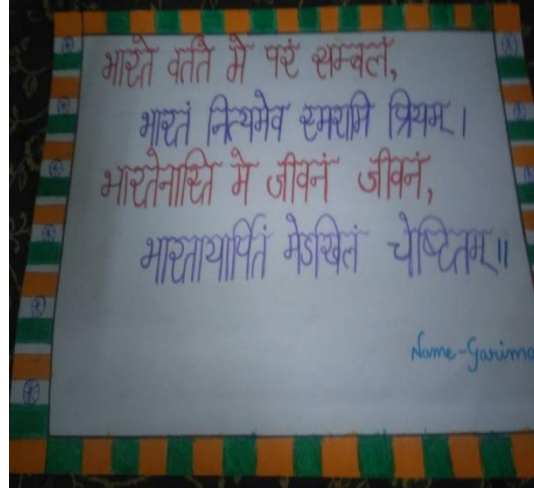 भारते वर्तते मे परं सम्बलं,
भारतं नित्यमेव स्मरामि प्रियम्।
भारतेनास्ति मे जीवनं जीवनं,
भारतायार्पितं मेऽखिलं चेष्टितम्॥
Name-Garima